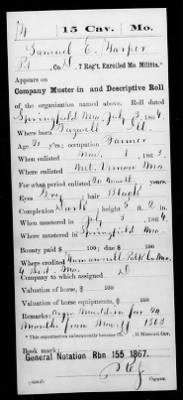 15 Cav. Mo.
Samuel E. Harper
Pvt, Co. , 7 Reg't, Enrolled Mo. Militia.*
Appears on
Company Muster-in and Descriptive Roll
of the organization named above. Roll dated
Springfield Mo, July 3, 1864.
Where born Tazwell Ill.
Age 21 y'rs; occupation Farmer
When enlisted Nov. 1, 1863.
Where enlisted Mt. Vernon Mo
For what period enlisted 20 months years.
Eyes Grey; hair Black
Complexion Dark; height 5 ft. 2 in.
When mustered in July 3, 1864.
Where mustered in Springfield Mo.
Bounty paid $ 100; due $ 100
Where credited
Mo.
Company to which assigned D
Valuation of horse, $ 100
Valuation of horse equipments, $ 100
Remarks: for 20
Months from Nov 1" 1863
*This organization subsequently became Co. , 15 Missouri Cav.
Book mark:
General Notation Rbn 155 1867.
Copyist.